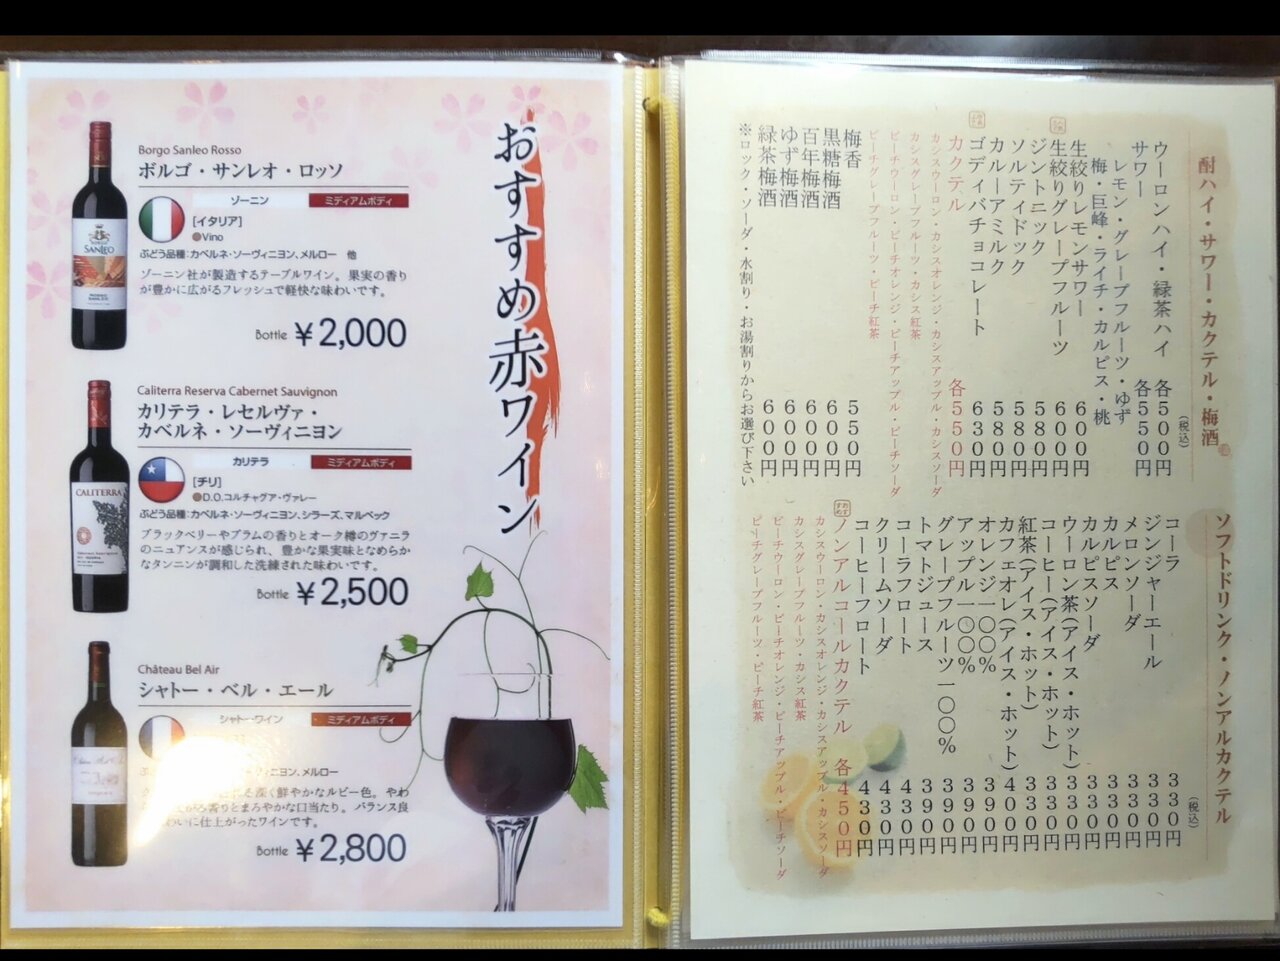 おすすめ赤ワイン
Borgo Sanleo Rosso
ボルゴ・サンレオ・ロッソ
ゾーニン ミディアムボディ
[イタリア]
●Vino
ぶどう品種:カベルネ・ソーヴィニヨン、メルロー 他
ゾーニン社が製造するテーブルワイン。果実の香り
が豊かに広がるフレッシュで軽快な味わいです。
Bottle ¥2,000
SANLEO
Caliterra Reserva Cabernet Sauvignon
カリテラ・レセルヴァ・
カベルネ・ソーヴィニヨン
カリテラ ミディアムボディ
[チリ]
●D.O.コルチャグア・ヴァレー
ぶどう品種:カベルネ・ソーヴィニヨン、シラーズ、マルベック
ブラックベリーやプラムの香りとオーク樽のヴァニラ
のニュアンスが感じられ、豊かな果実味となめらか
なタンニンが調和した洗練された味わいです。
Bottle ¥2,500
CALITERRA
Château Bel Air
シャトー・ベル・エール
シャトー・ワイン ミディアムボディ
ヴィニヨン、メルロー
深く鮮やかなルビー色。やわ
香りとまろやかな口当たり。バランス良
わいに仕上がったワインです。
Bottle ¥2,800
酎ハイ・サワー・カクテル・梅酒
(税込)
ウーロンハイ・緑茶ハイ 各500円
サワー 各550円
レモン・グレープフルーツ・ゆず
梅・巨峰・ライチ・カルピス・桃
生絞りレモンサワー 600円
生絞りグレープフルーツ 600円
ジントニック 580円
ソルティドック 580円
カルーアミルク 580円
ゴディバチョコレート 630円
カクテル 各550円
カシスウーロン・カシスオレンジ・カシスアップル・カシスソーダ
カシスグレープフルーツ・カシス紅茶
ピーチウーロン・ピーチオレンジ・ピーチアップル・ピーチソーダ
ピーチグレープフルーツ・ピーチ紅茶
梅香 550円
黒糖梅酒 600円
百年梅酒 600円
ゆず梅酒 600円
緑茶梅酒 600円
※ロック・ソーダ・水割り・お湯割りからお選び下さい
ソフトドリンク・ノンアルカクテル
(税込)
コーラ 330円
ジンジャーエール 330円
メロンソーダ 330円
カルピス 330円
カルピスソーダ 330円
ウーロン茶(アイス・ホット) 330円
コーヒー(アイス・ホット) 330円
紅茶(アイス・ホット) 330円
カフェオレ(アイス・ホット) 400円
オレンジ一〇〇% 390円
アップル一〇〇% 390円
グレープフルーツ一〇〇% 390円
トマトジュース 390円
コーラフロート 430円
クリームソーダ 430円
コーヒーフロート 430円
おすすめ
ノンアルコールカクテル 各450円
カシスウーロン・カシスオレンジ・カシスアップル・カシスソーダ
カシスグレープフルーツ・カシス紅茶
ピーチウーロン・ピーチオレンジ・ピーチアップル・ピーチソーダ
ピーチグレープフルーツ・ピーチ紅茶